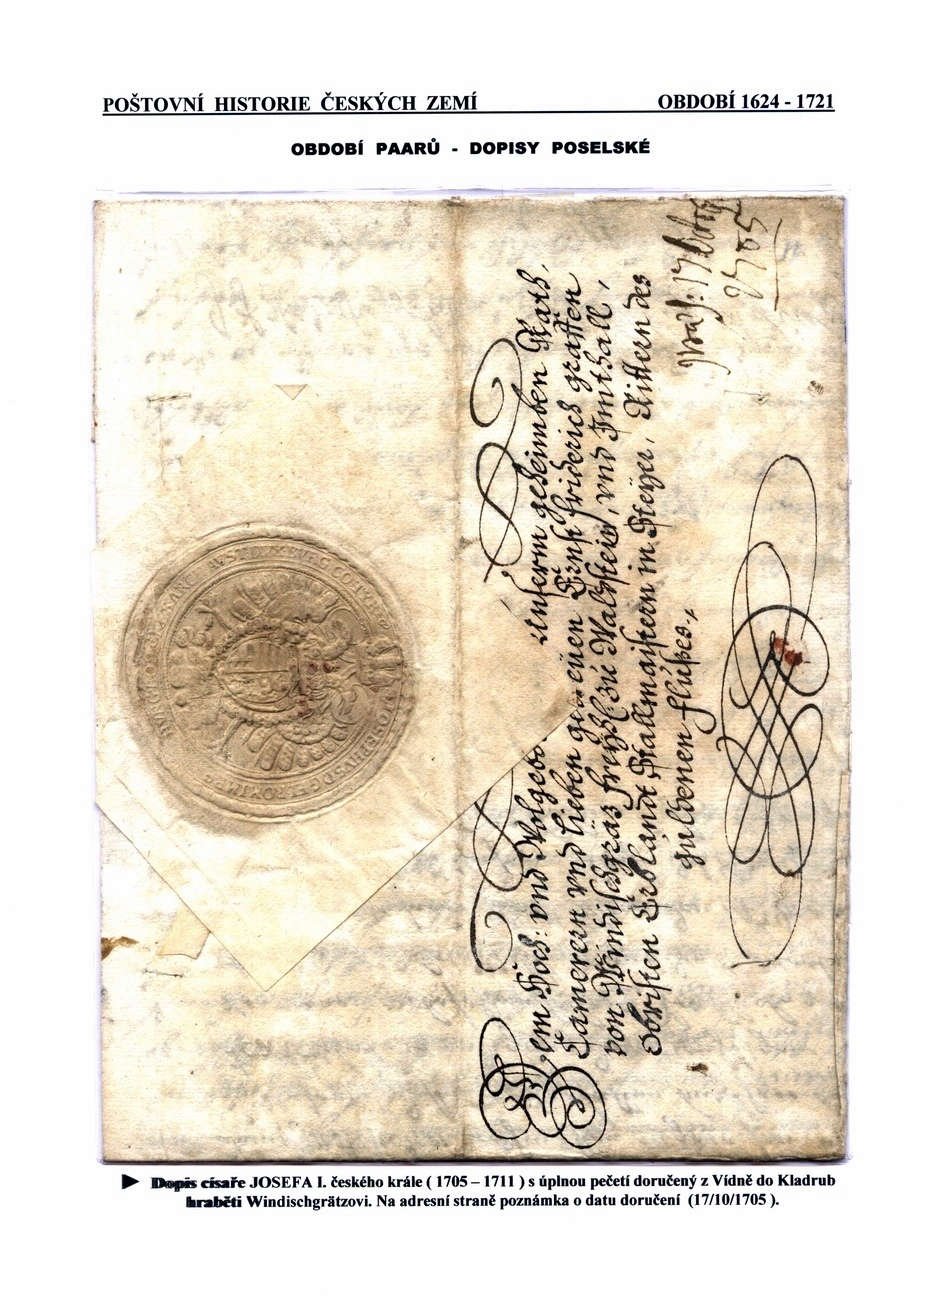 POŠTOVNÍ HISTORIE ČESKÝCH ZEMÍ OBDOBÍ 1624 - 1721
OBDOBÍ PAARŮ - DOPISY POSELSKÉ
Dem Hoch: und Wolgebo Unserm geheimben Rath,
Camerern und lieben getreuen Ernst Friderich graffen
von Windischgräz freyh: zu Walstein, und Imthall,
Obristen Erblandt Stallmaistern in Steyer, Rittern des
guldenen flüßes,
17 8bris
1705
IOSEPHUS D G ROM IM
► Dopis císaře JOSEFA I. českého krále ( 1705 – 1711 ) s úplnou pečetí doručený z Vídně do Kladrub
hraběti Windischgrätzovi. Na adresní straně poznámka o datu doručení (17/10/1705 ).